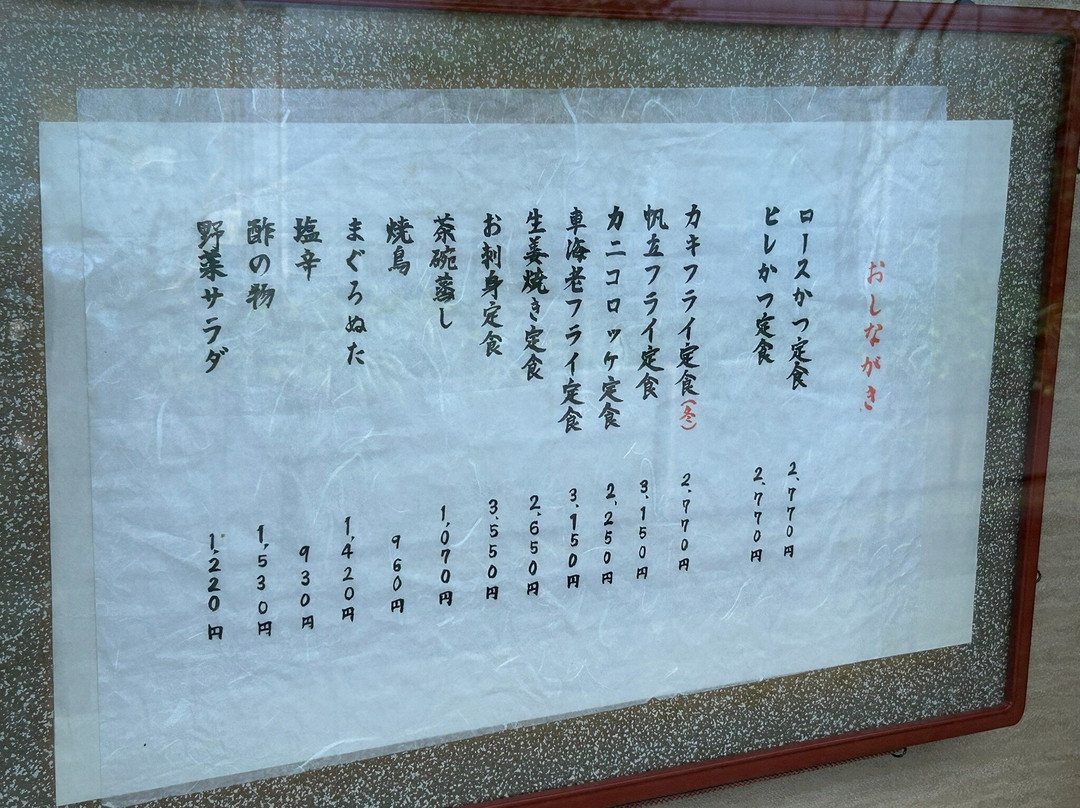 おしながき
ロースかつ定食 2,770円
ヒレかつ定食 2,770円
カキフライ定食(冬) 2,770円
帆立フライ定食 3,150円
カニコロッケ定食 2,250円
車海老フライ定食 3,950円
生姜焼き定食 2,650円
お刺身定食 3,550円
茶碗蒸し 1,070円
焼鳥 960円
まぐろぬた 1,420円
塩辛 930円
酢の物 1,530円
野菜サラダ 1,220円